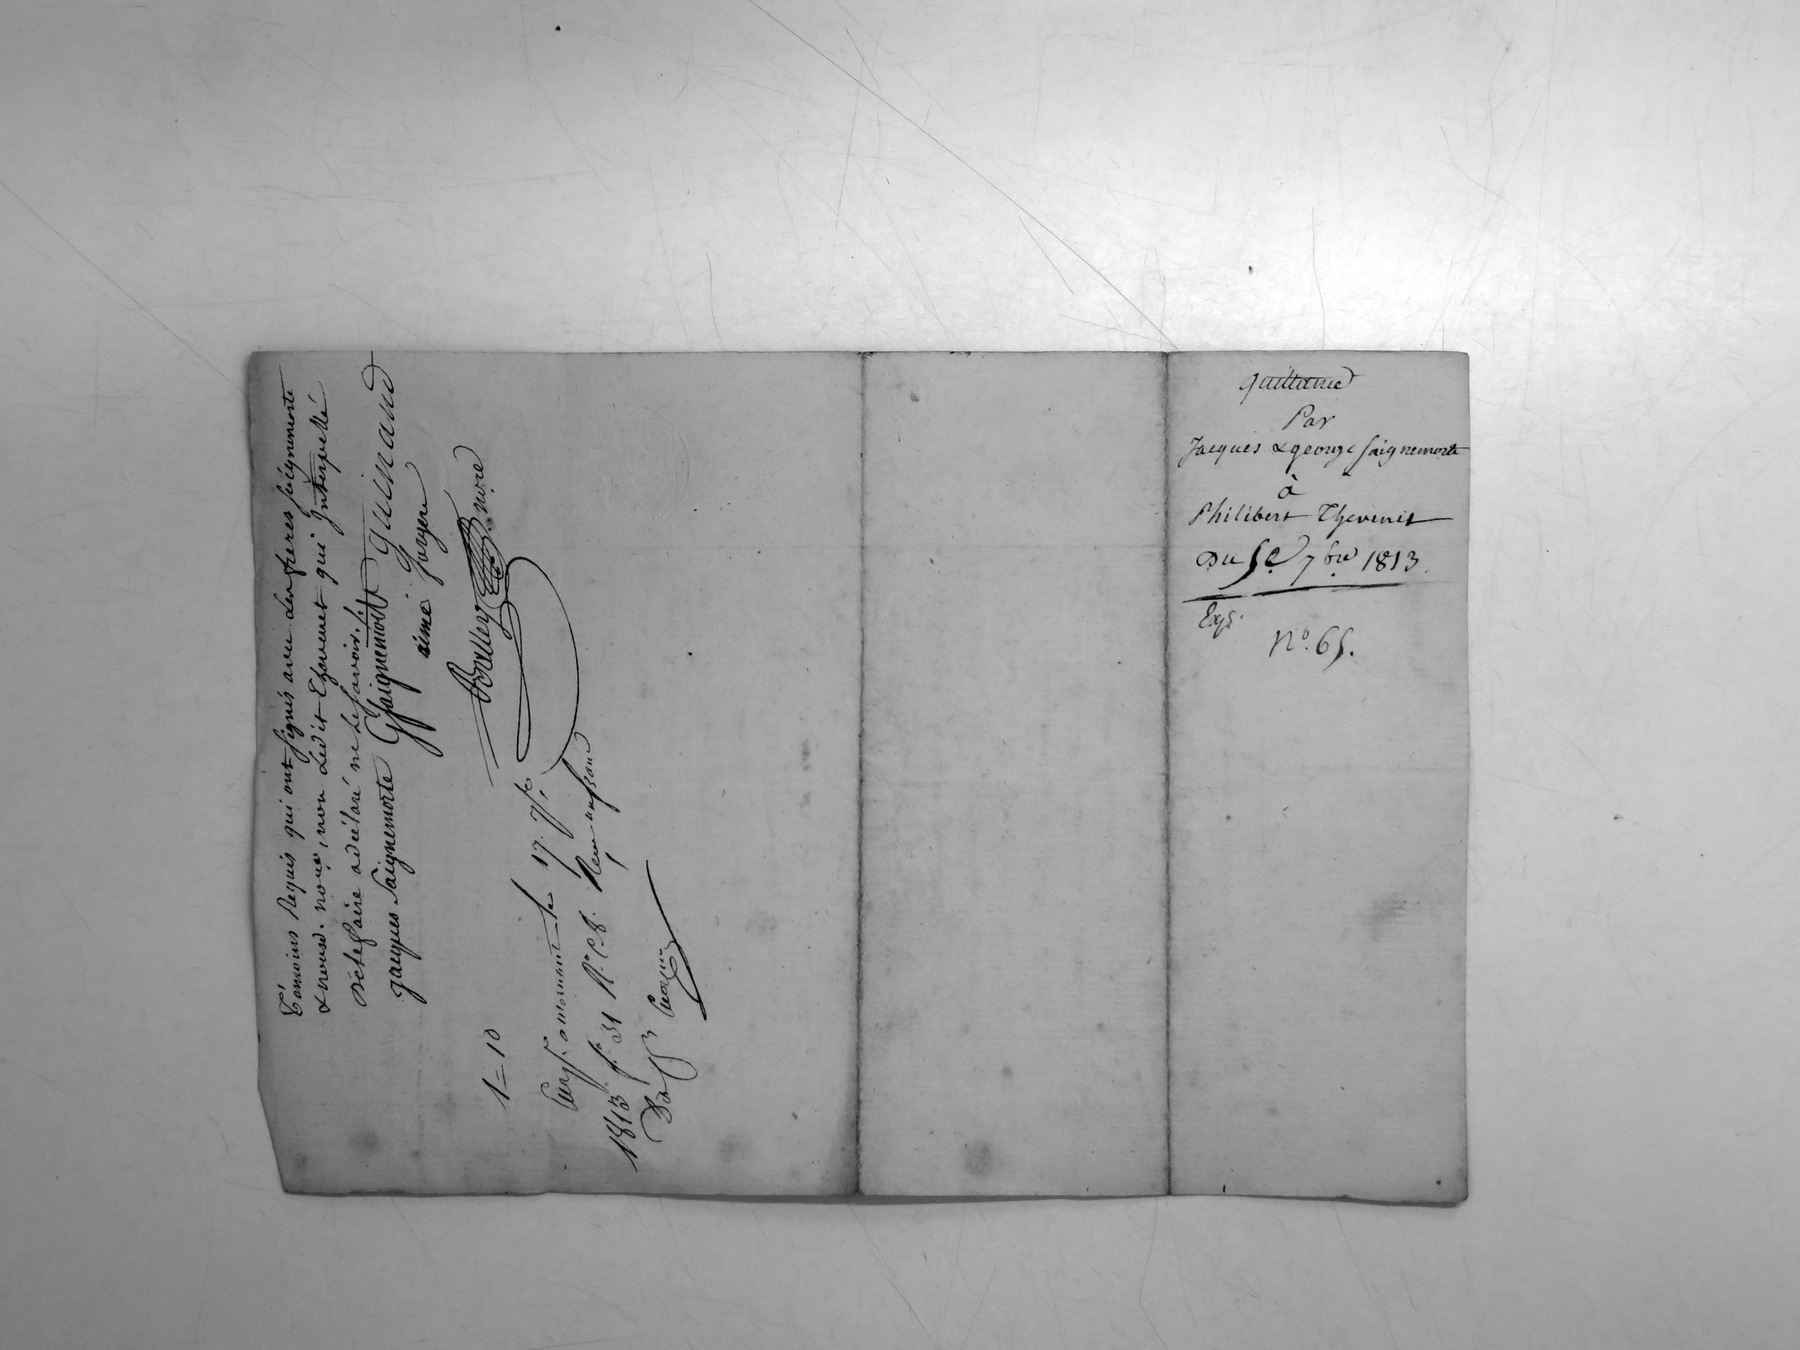 témoins Requis qui ont signés avec les freres saignemorte
& nousd. nore, non Ledit thevenet qui Interpellé
de le faire a déclaré ne le savoir./.
Jacques Saignemorte GSaignemorte guinand
aimé Joryere
Boulley nore
1=10
Enrg. a mornant le 17. 7bre
1813 fo. 31 Ro. C. 8. Reçu un franc
dix
quittance
Par
Jacques & george Saignemorte
à
Philibert Thevenet
Du 5e 7bre 1813
Exp.
No. 65.